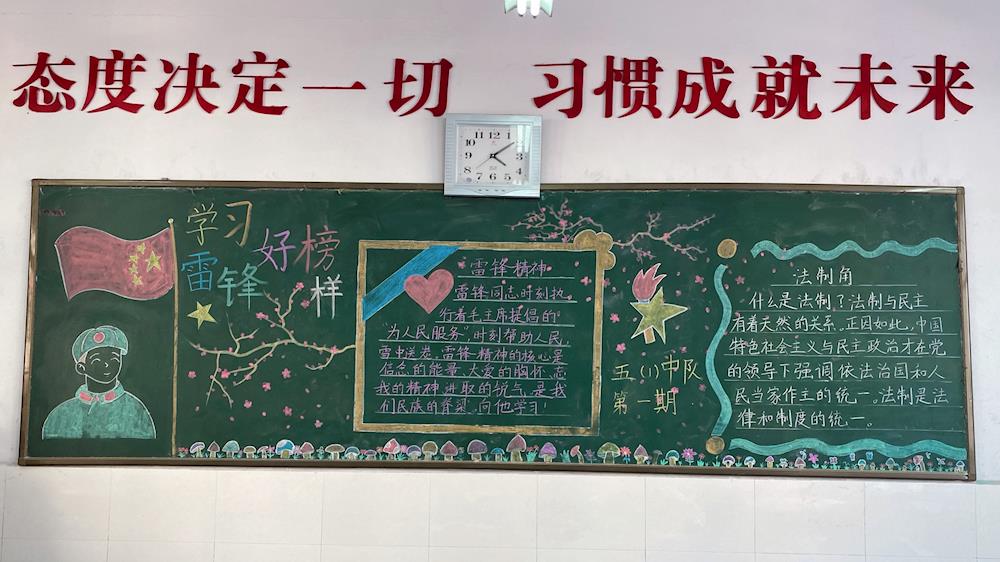 态度决定一切 习惯成就未来
学习
雷锋
好榜
样
雷锋精神
雷锋同志时刻执
行着毛主席提倡的
“为人民服务”时刻帮助人民,
雪中送炭。雷锋精神的核心是
信念的能量、大爱的胸怀、忘
我的精神、进取的锐气,是我
们民族的脊梁。向他学习!
五(1)中队
第一期
法制角
什么是法制?法制与民主
有着天然的关系。正因如此,中国
特色社会主义与民主政治才在党
的领导下强调依法治国和人
民当家作主的统一。法制是法
律和制度的统一。
11 12 1
10 2
9 3
8 4
7 6 5